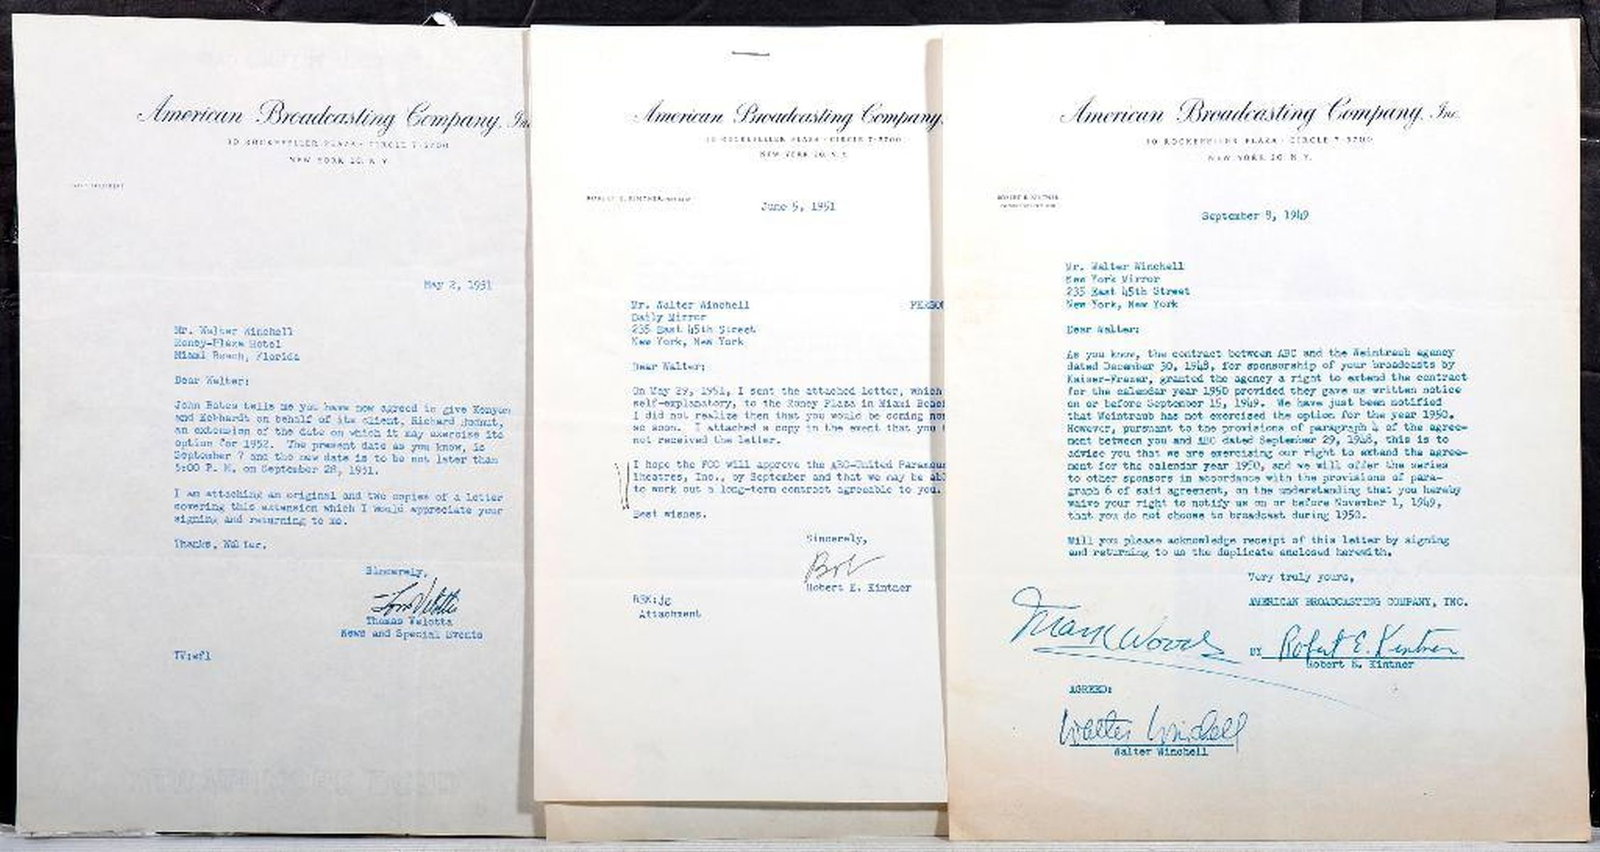 American Broadcasting Company, Inc.
30 ROCKEFELLER PLAZA · CIRCLE 7-5700
NEW YORK 20, N. Y.
May 2, 1951
Mr. Walter Winchell
Roney-Plaza Hotel
Miami Beach, Florida
Dear Walter:
John Bates tells me you have now agreed to give Kenyon
and Eckhardt on behalf of its client, Richard Hudnut,
an extension of the date on which it may exercise its
option for 1952. The present date as you know, is
September 7 and the new date is to be not later than
5:00 P. M. on September 28, 1951.
I am attaching an original and two copies of a letter
covering this extension which I would appreciate your
signing and returning to me.
Thanks, Walter.
Sincerely,
Tom Velotta
Thomas Velotta
News and Special Events
TV:wfl
American Broadcasting Company,
30 ROCKEFELLER PLAZA · CIRCLE 7-5700
NEW YORK 20, N. Y.
ROBERT E. KINTNER
June 5, 1951
Mr. Walter Winchell PERSO
Daily Mirror
235 East 45th Street
New York, New York
Dear Walter:
On May 29, 1951, I sent the attached letter, which
self-explanatory, to the Roney Plaza in Miami
I did not realize then that you would be coming
so soon. I attached a copy in the event that you
not received the letter.
I hope the FCC will approve the ABC-United Paramou
Theatres, Inc., by September and that we may be
to work out a long-term contract agreeable to you.
Best wishes.
Sincerely,
Bob
Robert E. Kintner
REK:jg
Attachment
American Broadcasting Company, Inc.
30 ROCKEFELLER PLAZA · CIRCLE 7-5700
NEW YORK 20, N. Y.
ROBERT E. KINTNER
September 8, 1949
Mr. Walter Winchell
New York Mirror
235 East 45th Street
New York, New York
Dear Walter:
As you know, the contract between ABC and the Weintraub agency
dated December 30, 1948, for sponsorship of your broadcasts by
Kaiser-Frazer, granted the agency a right to extend the contract
for the calendar year 1950 provided they gave us written notice
on or before September 15, 1949. We have just been notified
that Weintraub has not exercised the option for the year 1950.
However, pursuant to the provisions of paragraph 4 of the agree-
ment between you and ABC dated September 29, 1948, this is to
advise you that we are exercising our right to extend the agree-
ment for the calendar year 1950, and we will offer the series
to other sponsors in accordance with the provisions of para-
graph 6 of said agreement, on the understanding that you hereby
waive your right to notify us on or before November 1, 1949,
that you do not choose to broadcast during 1950.
Will you please acknowledge receipt of this letter by signing
and returning to us the duplicate enclosed herewith.
Very truly yours,
AMERICAN BROADCASTING COMPANY, INC.
Mark Woods
BY Robert E. Kintner
Robert E. Kintner
AGREED:
Walter Winchell
Walter Winchell